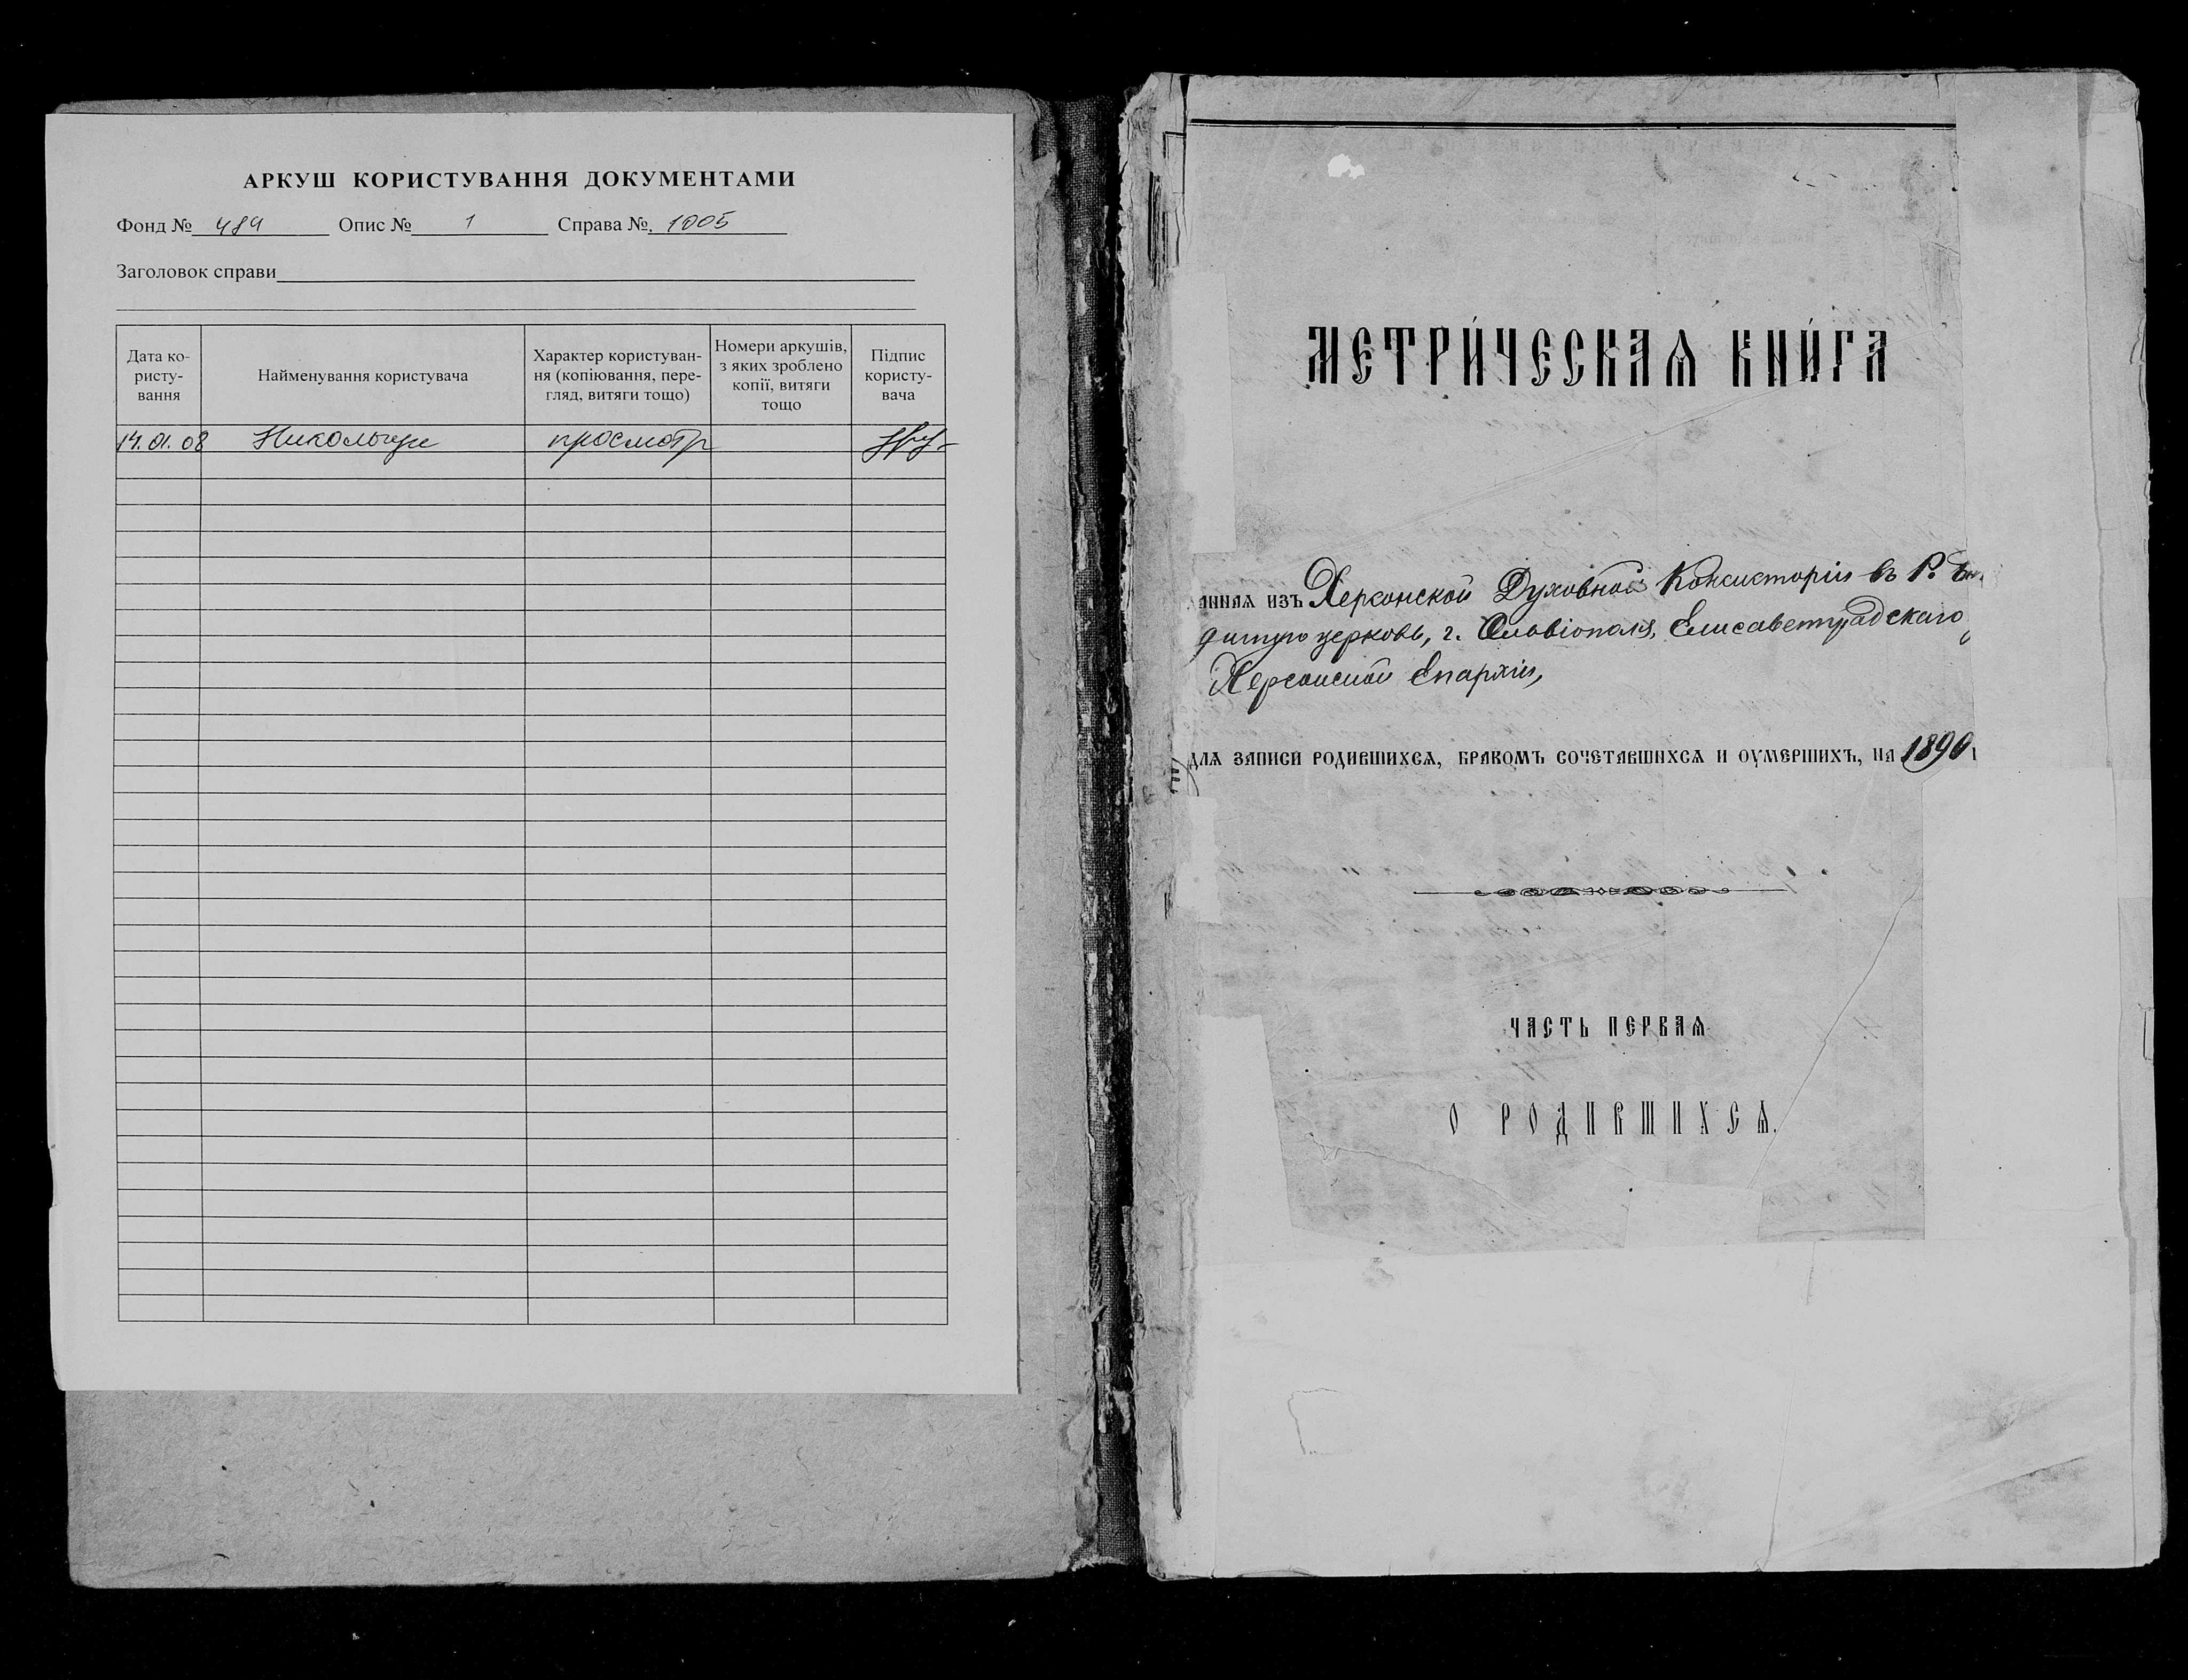 АРКУШ КОРИСТУВАННЯ ДОКУМЕНТАМИ
Фонд № 484 Опис № 1 Справа № 1005
Заголовок справи
Дата ко-
ристу-
вання
Найменування користувача
Характер користуван-
ня (копіювання, пере-
гляд, витяги тощо)
Номери аркушів,
з яких зроблено
копії, витяги
тощо
Підпис
користу-
вача
14.01.08 просмотр
МЕТРИ́ЧЕСКАѦ КНИ́ГА
анная изъ Херсонской Духовной Консисторіи въ Р. Бо
дичную церковь, г. Ольвіополя, Елисаветградскаго
Херсонской Епархіи,
длѧ записи родившихсѧ, бракомъ сочетавшихсѧ и оумершихъ, на 1890
ЧАСТЬ ПЕРВАѦ
О РОДИВШИХСѦ.